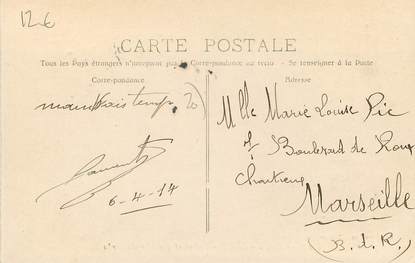 12€
CARTE POSTALE
Tous les Pays étrangers n'acceptent pas la Correspondance au recto - Se renseigner à la Poste
Correspondance
mauvais temps
6-4-14
Adresse
Mlle Marie Louise Pic
Boulevard de
Chartreux
Marseille
(B. d. R.)